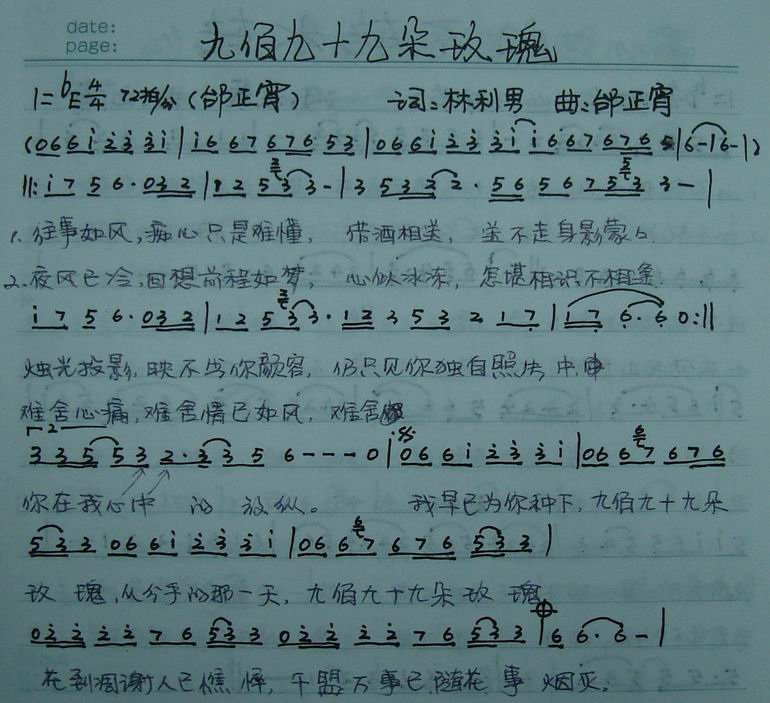 date:
page:
九佰九十九朵玫瑰
1=bE 4/4 72拍/分 (邰正宵) 词:林利男 曲:邰正宵
(066i 2̇3̇ 3̇i | i6 67 676 53 | 066i 2̇3̇ 3̇i i6 67 676 5 | 6-|6-|)
||: i7 56· 032 | 12 533 3- | 3 532 2· 56 567 533 3- |
1. 往事如风,痴心只是难懂, 借酒相送, 送不走身影蒙
2. 夜风已冷,回想前程如梦, 心似冰冻, 怎堪相识不相逢.
i7 56· 032 | 12 533 3· 12 3 53 2 17 | 17 6· 6 0 :||
烛光投影,映不出你颜容, 仍只见你独自照片中.
难舍心痛,难舍情已如风, 难舍
2 335 53 2·3 3 5 6 - - - 0 | 066i 2̇3̇ 3̇i | 06 67 676
你在我心中 的 放纵。 我早已为你种下,九佰九十九朵
533 066i 2̇3̇ 3̇i | 06 67 676 533 |
玫 瑰,从分手的那一天, 九佰九十九朵玫 瑰
02̇2̇ 2̇2̇ 76 533 02̇2̇ 2̇2̇ 76 533 | 6 6· 6 - |
花到凋谢人已憔 悴, 千盟万事已随花 事 烟灭.